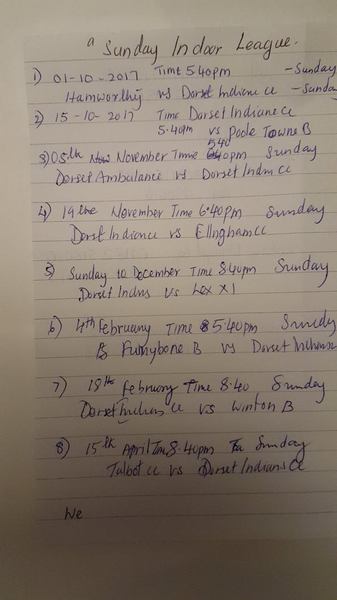 a Sunday Indoor League.
1) 01-10-2017 Time 5.40pm - Sunday
Hamworthy vs Dorset Indians cc - Sunday
2) 15-10-2017 Time Dorset Indians cc
5.40pm vs Poole Towne B
5.40
3) 05th November Time 40pm Sunday
Dorset Ambulance vs Dorset Indian cc
4) 19the November Time 6.40pm Sunday
Dorset Indiance vs Ellngham cc
5) Sunday 10 December Time 8.40pm Sunday
Dorset Indns vs Lex XI
6) 4th February Time 5.40pm Sundy
Funnybone B vs Dorset
7) 18th february Time 8.40 Sunday
Dorset Indians cc vs Winton B
8) 15th April Time 8.40pm Sunday
Talbot cc vs Dorset Indians cc
We